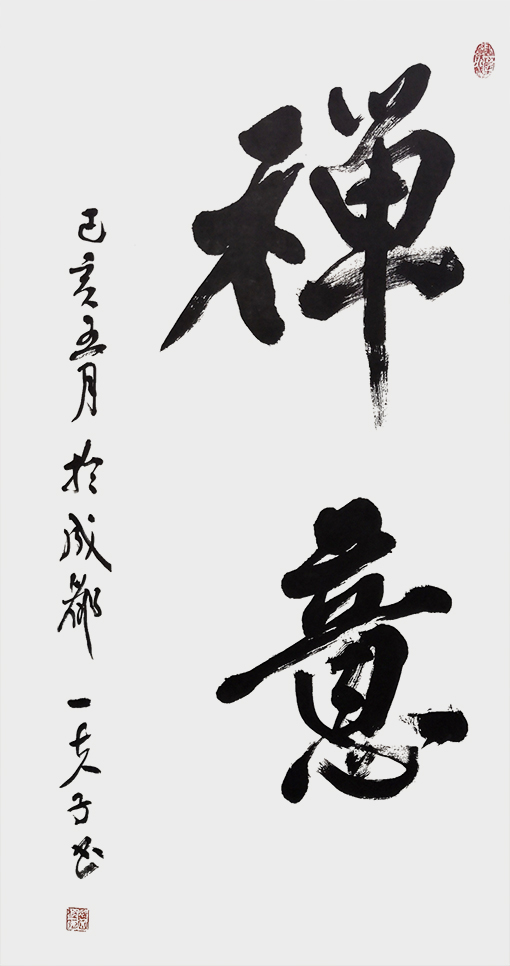 禅意
己亥五月於成都一夫子书